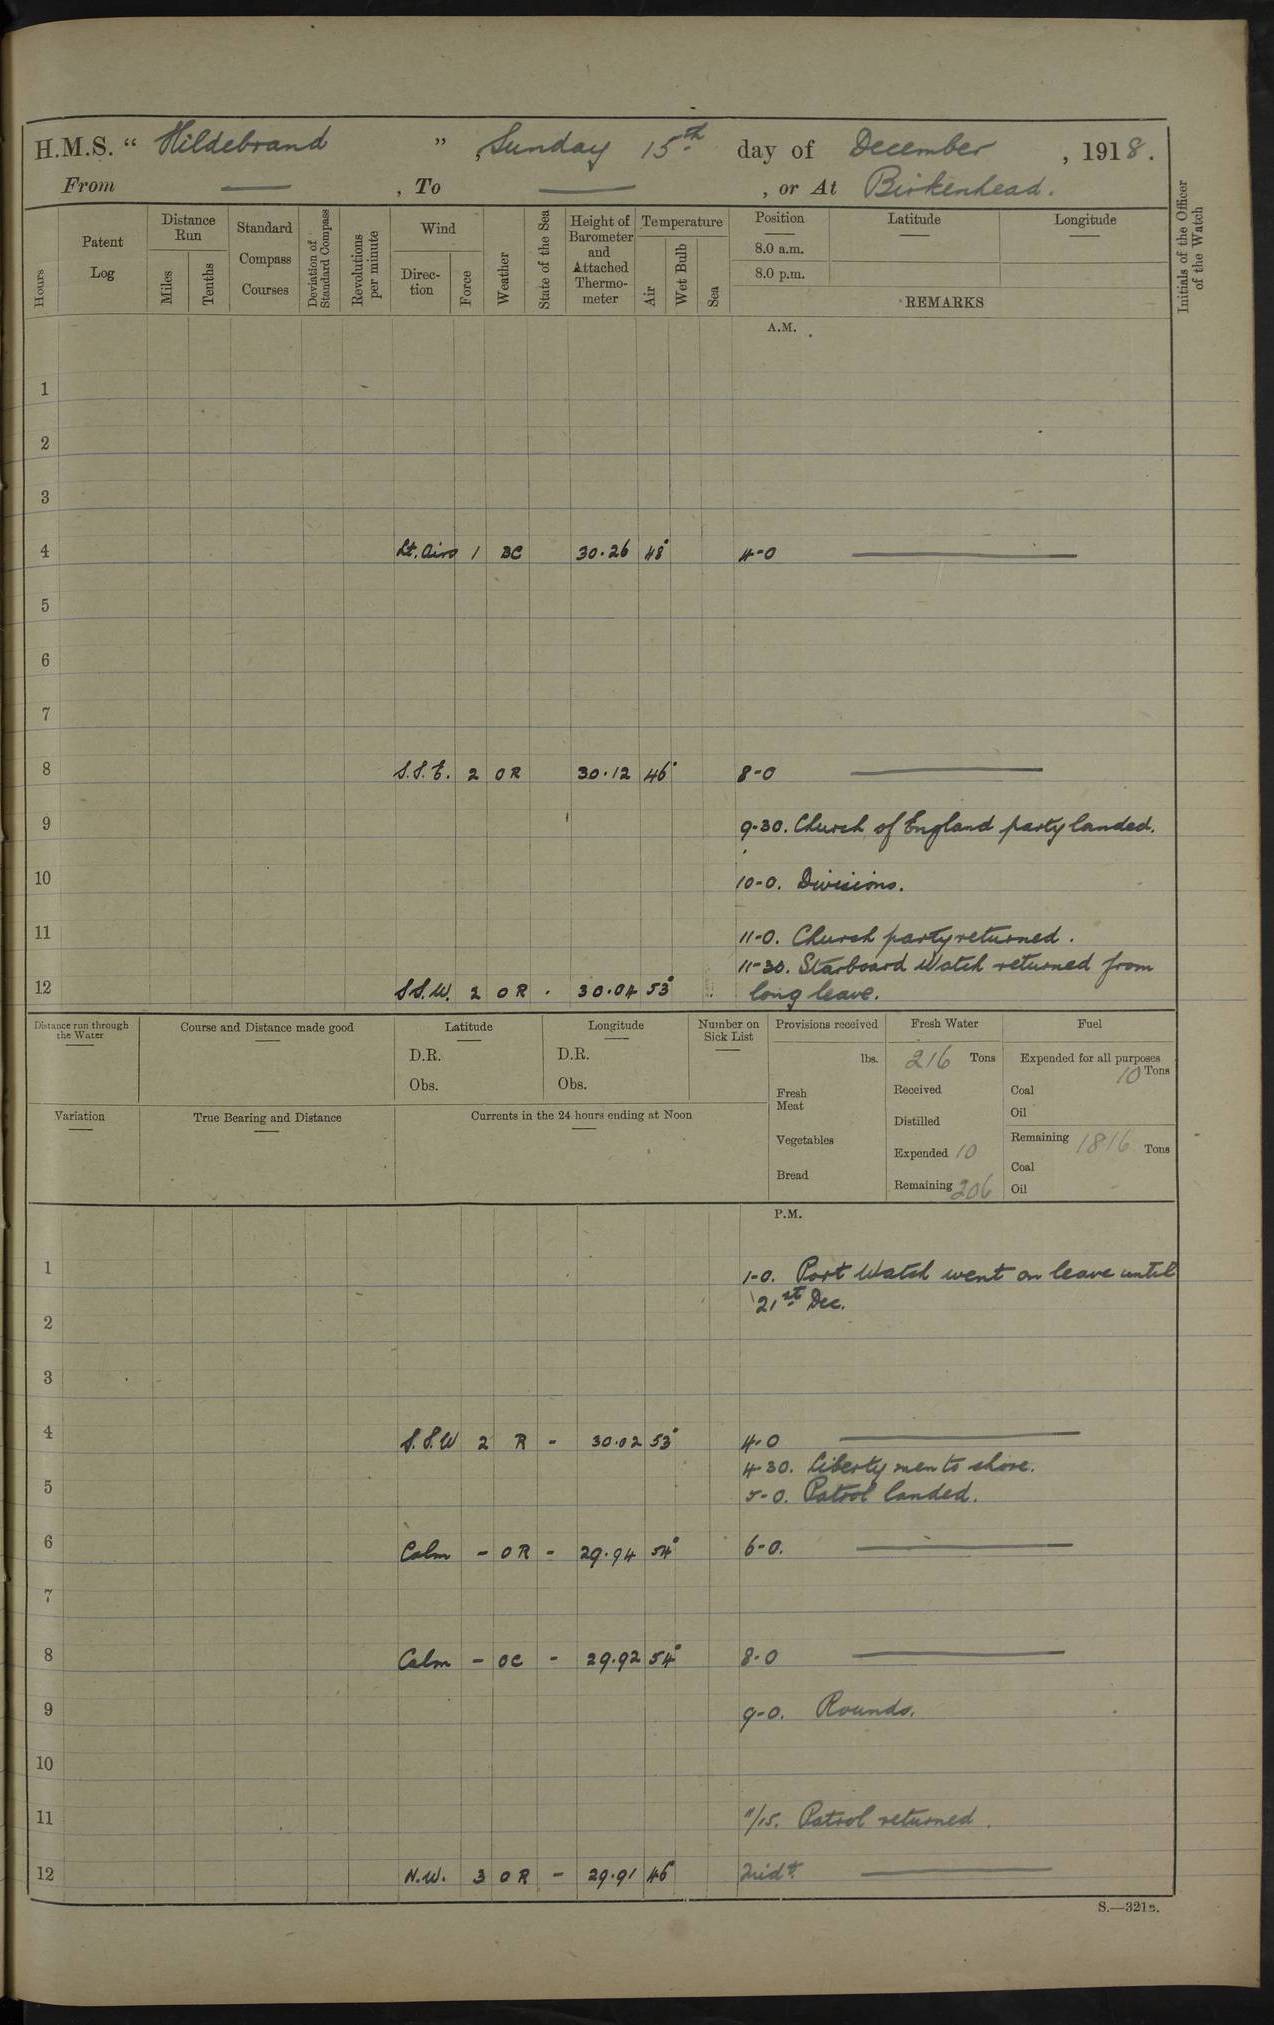 H.M.S. " Hildebrand ", Sunday 15th day of December, 1918.
From — , To — , or At Birkenhead.
Hours
Patent Log
Distance Run
Miles
Tenths
Standard Compass Courses
Deviation of Standard Compass
Revolutions per minute
Wind
Direc-tion
Force
Weather
State of the Sea
Height of Barometer and Attached Thermo-meter
Temperature
Air
Wet Bulb
Sea
Position
8.0 a.m.
8.0 p.m.
Latitude
Longitude
REMARKS
Initials of the Officer of the Watch
A.M.
1
2
3
4 Lt. Airs 1 BC 30.26 48° 4-0 —
5
6
7
8 S.S.E. 2 OR 30.12 46° 8-0 —
9 9-30. Church of England party landed.
10 10-0. Divisions.
11 11-0. Church party returned.
11-30. Starboard Watch returned from
12 S.S.W. 2 OR - 30.04 53° long leave.
Distance run through the Water
Course and Distance made good
Latitude
D.R.
Obs.
Longitude
D.R.
Obs.
Number on Sick List
Provisions received
lbs.
Fresh Meat
Vegetables
Bread
Fresh Water
216 Tons
Received
Distilled
Expended 10
Remaining 206
Fuel
Expended for all purposes
10 Tons
Coal
Oil
Remaining 1816 Tons
Coal
Oil
Variation
True Bearing and Distance
Currents in the 24 hours ending at Noon
P.M.
1 1-0. Port Watch went on leave until
21st Dec.
2
3
4 S.S.W 2 R - 30.02 53° 4-0 —
4-30. Liberty men to shore.
5 5-0. Patrol landed.
6 Calm - OR - 29.94 54° 6-0. —
7
8 Calm - OC - 29.92 54° 8-0 —
9 9-0. Rounds.
10
11 11/15. Patrol returned.
12 N.W. 3 OR - 29.91 46 Midt. —
S.—321B.